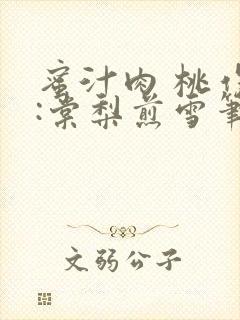 蜜汁肉桃作
:棠梨煎雪笔
文弱公子